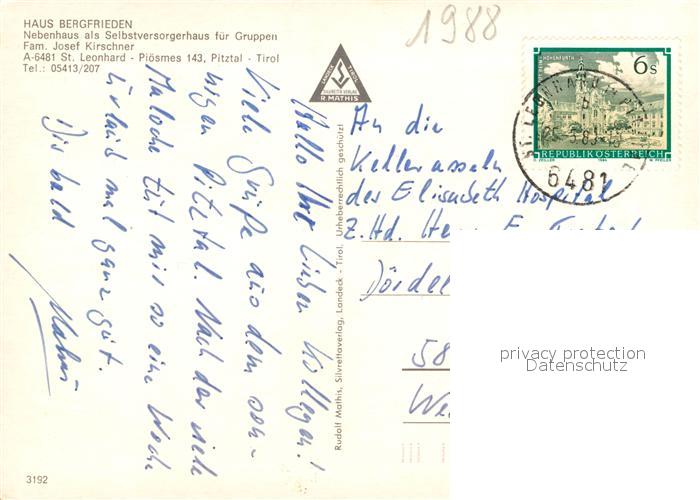 HAUS BERGFRIEDEN
Nebenhaus als Selbstversorgerhaus für Gruppen
Fam. Josef Kirschner
A-6481 St. Leonhard - Piösmes 143, Pitztal - Tirol
Tel.: 05413/207
1988
LANDECK TIROL
SILVRETTA VERLAG
R. MATHIS
HOHENFURTH
6s
REPUBLIK ÖSTERREICH
ST. LEONHARD
6481
Hallo Ihr lieben Kollegen!
Viele Grüße aus dem son-
nigen Pitztal. Nach der viele
Maloche tut mir so eine Woche
Urlaub mal ganz gut.
Bis bald
Rudolf Mathis, Silvrettaverlag, Landeck - Tirol. Urheberrechtlich geschützt!
An die
Kellerasseln
der Elisabeth Hospital
Z. Hd. Herr
58
privacy protection
Datenschutz
3192